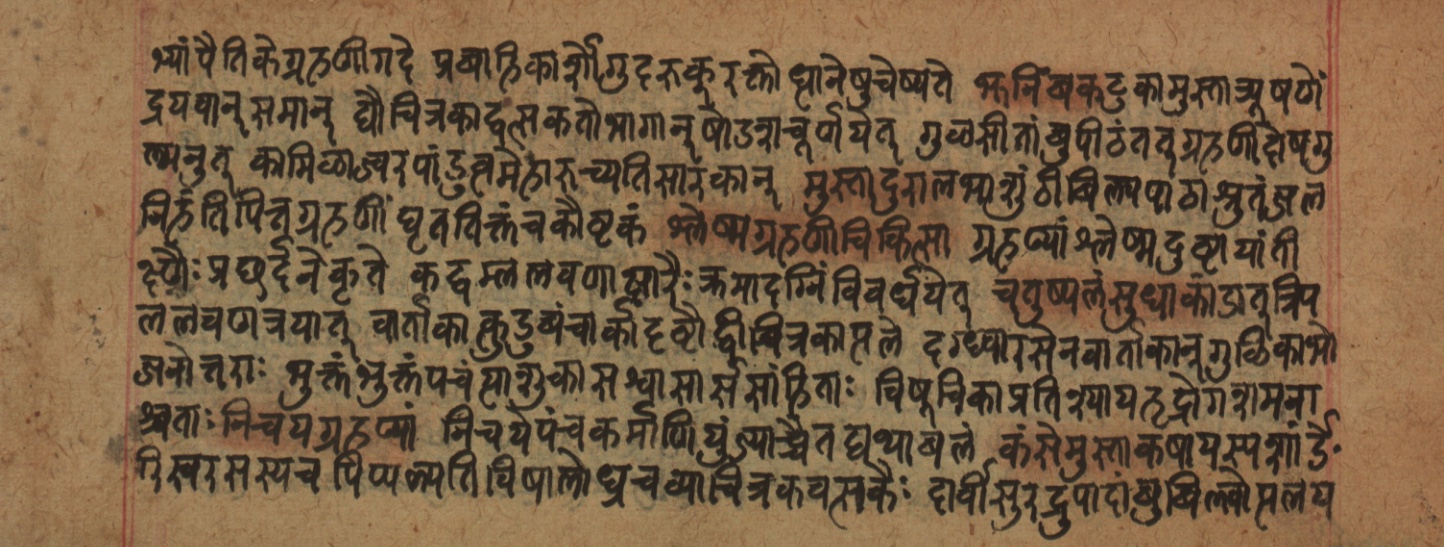 भ्यां पैतिके ग्रहणीगदे प्रवाहिकार्शोगुदरुक् रक्तोथानेषु चेष्यते भूनिंबकटुकामुस्तात्र्यूषणें
द्रयवान् समान् द्वौ चित्रकाद्वत्सकतो भागान् षोडशचूर्णयेत् गुळसीतांबुपीठं तत् ग्रहणीदोषगु
ल्मनुत् कामिळाज्वरपांडुत्वमेहारुच्यतिसारकान् मुस्तादुरालभाशुंठीबिल्वपाठाश्रुतंजल
निहंति पित्तग्रहणीं घृततिक्तं च कौष्टकं श्लेष्मग्रहणीचिकित्सा ग्रहण्यां श्लेष्मदुष्टायां ती
क्ष्णैः प्रछर्दने कृते कद्वम्ललवणाक्षारैः क्रमादग्निं विवर्धयेत् चतुष्पलंसुधाकांडात् त्रिप
ललवणत्रयात् वार्ताकात्कुडुबंचार्कादष्टौ द्वीचित्रकात्पले दग्ध्वारसेन वार्ताकान्गुळिकाभो
जनोत्तराः भुक्तंभुक्तंपचंत्याशुकासश्वासार्ससांहिताः विषूचिकाप्रतिश्यायहृद्रोगशमना
श्चताः निचयग्रहण्यां निचये पंचकर्माणि युंज्याच्चैतद्यथाबलं कंसेमुस्ताकषायस्य शार्ङे
रिस्वरसस्य च पिप्पल्यतिविषालोध्रचव्याचित्रकवत्सकैः दार्वीसुरद्रुपादांबुबिल्वोत्पलय